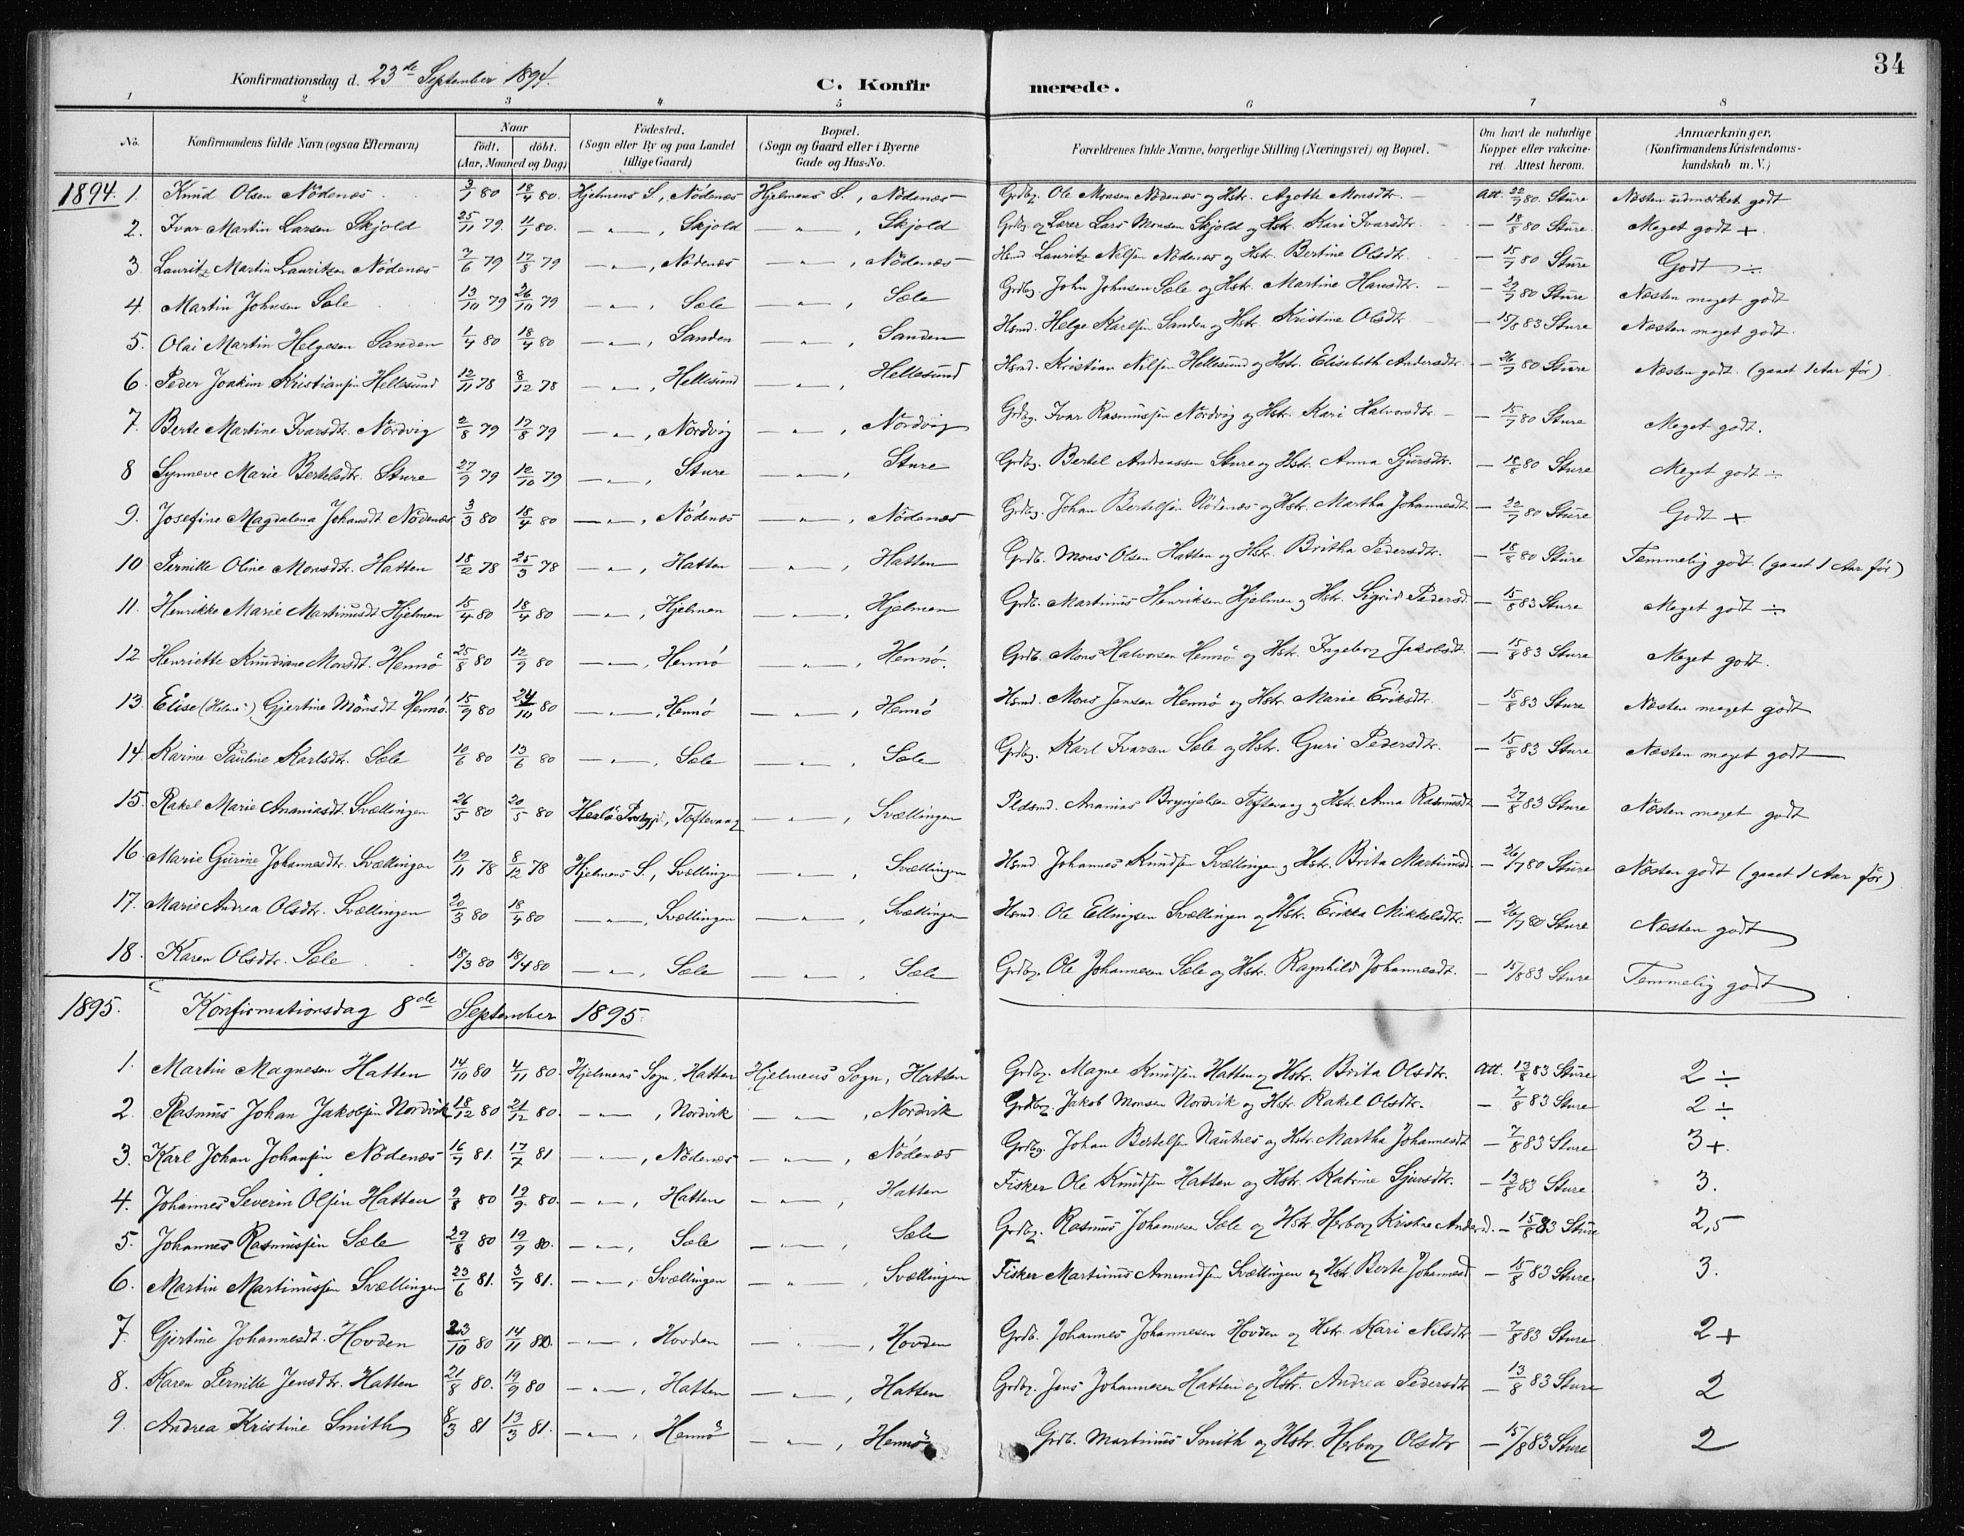 34
Konfirmationsdag d. 23de September 1894. C. Konfirmerede.
1 2 3 4 5 6 7 8
No. Konfirmandens fulde Navn (ogsaa Efternavn) Naar født. døbt. (Aar, Maaned og Dag) Fødested. (Sogn eller By og paa Landet tillige Gaard) Bopæl. (Sogn og Gaard eller i Byerne Gade og Hus-No. Forældrenes fulde Navne, borgerlige Stilling (Næringsvei) og Bopæl. Om havt de naturlige Kopper eller vakcineret. Attest herom. Anmærkninger. (Konfirmandens Kristendomskundskab m. V.)
1894. 1. Knud Olsen Nödenæs 3/1 80 18/4 80. Hjelmens S., Nödenæs Hjelmens S., Nödenæs Grdbg. Ole Monsen Nödenæs og Hstr. Agotte Monsdtr. — Att. 22/7 80 Sture Næsten udmerket godt
2. Ivar Martin Larsen Skjold 25/11 79. 11/1 80. —„—, Skjold —„—, Skjold Grdbg. og Lærer Lars Monsen Skjold og Hstr. Kari Ivarsdtr. — 18/8 80 Sture Meget godt +.
3. Lauritz Martin Lauritsen Nödenæs 7/6 79 17/8 79 —„—, Nödenæs —„—, Nödenæs Lauritz Nilsen Nödenæs og Hstr. Bertine Olsdtr. — 15/7 80 Sture Godt ÷
4. Martin Johnsen Sæle 13/10 79 26/10 79 —„—, Sæle —„—, Sæle Grdbg. John Johnsen Sæle og Hstr. Martine Hansdtr. — 29/7 80 Sture Næsten meget godt
5. Olai Martin Helgesen Sanden 1/4 80 18/4 80 —„—, Sanden —„—, Sanden Hsmd. Helge Karlsen Sanden og Hstr. Kristine Olsdtr. — 15/8 83 Sture Næsten meget godt.
6. Peder Joakim Kristiansen Hellesund 12/11 78 8/12 78 —„—, Hellesund —„—, Hellesund Hsmd. Kristian Nilsen Hellesund og Hstr. Elisebeth Andersdtr. — 26/7 80 Sture Næsten godt. (gaaet 1 Aar før)
7. Berte Martine Ivarsdtr. Nordvig 2/8 79 17/8 79 —„—, Nordvig —„—, Nordvig Grdbg. Ivar Rasmussen Nordvig og Hstr. Kari Halvorsdtr. — 15/7 80 Sture Meget godt.
8 Synneve Marie Bertelsdtr. Sture 27/9 79 12/10 79 —„—, Sture —„—, Sture Grdbg. Bertel Andreassen Sture og Hstr. Anna Sjursdtr. — 18/8 80 Sture Meget godt ÷
9. Josefine Magdalena Johansdt. Nödenæs 3/3 80 18/4 80 —„—, Nödenæs —„—, Nödenæs Grdbg. Johan Bertelsen Nödenæs og Hstr. Martha Johannesdt. — 22/7 80 Sture Godt +
10 Pernille Oline Monsdtr. Hatten 18/2 78 25/3 78 —„—, Hatten —„—, Hatten Grdb. Mons Olsen Hatten og Hstr. Britha Pedersdtr. — 18/8 80 Sture Temmelig godt. (gaaet 1 Aar før)
11. Henrikke Marie Martinusdt. Hjelmen 15/4 80 18/4 80 —„—, Hjelmen —„—, Hjelmen Grdb. Martinus Henriksen Hjelmen og Hstr. Sigrid Pedersd. — 15/8 83 Sture Meget godt ÷
12 Henriette Knudiane Monsdt. Hennö 25/8 80 12/9 80 —„—, Hennö —„—, Hennö. Grdb. Mons Halvorsen Hennö og Hstr. Ingeborg Jakobsdt. — 15/8 83 Sture Meget godt.
13. Elise (Helene) Gjertine Monsdt. Hennö. 15/9 80 24/10 80 —„—, Hennö —„—, Hennö Hsmd. Mons Jensen Hennö og Hstr. Marie Eriksdtr. — 15/8 83 Sture Næsten meget godt
14. Karine Pauline Karlsdtr. Sæle 10/6 80 13/6 80 —„—, Sæle —„—, Sæle Grdbg. Karl Ivarsen Sæle og Hstr. Guri Pedersdtr. — 15/8 83 Sture Næsten meget godt
15. Rakel Marie Ananiasdt. Svællingen 26/5 80 20/5 80 Herlö Prstgjd., Toftevaag —„—, Svællingen Pldsmd. Ananias Brynjelsen Toftevaag og Hstr. Anna Rasmusdt. — 27/8 83 Sture Næsten meget godt
16. Marie Gurine Johannesdtr. Svællingen 12/11 78 8/12 78 Hjelmens S., Svællingen —„—, Svællingen Hsmd. Johannes Knudsen Svællingen og Hstr. Brita Martinusd. — 26/7 80 Sture Næsten godt (gaaet 1 Aar før)
17. Marie Andrea Olsdtr. Svællingen 20/3 80 18/4 80 —„—, Svællingen —„—, Svællingen Hsmd. Ole Ellingsen Svællingen og Hstr. Erikka Mikkelsdtr. — 26/7 80 Sture Næsten godt
18. Karen Olsdtr. Sæle 18/3 80 18/4 80 —„—, Sæle —„—, Sæle Grdbg. Ole Johannesen Sæle og Hstr. Ragnhild Johannesdt. — 15/8 83 Sture Temmelig godt
1895. Konfirmationsdag 8de September 1895.
1. Martin Magnesen Hatten 14/10 80 4/11 80. Hjelmens Sogn, Hatten Hjelmens Sogn, Hatten Grdbg. Magne Knudsen Hatten og Hstr. Brita Olsdtr. Att. 13/8 83 Sture 2 ÷
2. Rasmus Johan Jakobsen Nordvik 18/12 80 21/12 80. —„—, Nordvik —„—, Nordvik Grdbg. Jakob Monsen Nordvik og Hstr. Rakel Olsdtr. — 7/8 83 Sture 2 ÷
3. Karl Johan Johansen Nödenæs 16/7 81. 17/7 81 —„—, Nödenæs —„—, Nödenæs Grdbg. Johan Bertelsen Nautnes og Hstr. Martha Johannesdt. — 7/8 83 Sture 3+.
4. Johannes Severin Olsen Hatten 9/8 80 19/9 80. —„—, Hatten —„—, Hatten Fisker Ole Knudsen Hatten og Hstr. Katrine Sjursdtr. — 13/8 83 Sture 3.
5. Johannes Rasmussen Sæle 29/8 80 19/9 80. —„—, Sæle —„—, Sæle Grdbg. Rasmus Johannesen Sæle og Hstr. Herborg Kristine Andersd. — 15/8 83 Sture 2,5
6. Martin Martinussen Svællingen 23/6 81. 3/7 81. —„—, Svællingen —„—, Svællingen Fisker Martinus Amundsen Svællingen og Hstr. Berte Johannesd. — 15/8 83 Sture 3.
7. Gjertine Johannesdt. Hovden 23/10 80 14/11 80. —„—, Hovden —„—, Hovden Grdb. Johannes Johannesen Hovden og Hstr. Kari Nilsdtr. — 7/8 83 Sture 2 +
8. Karen Pernille Jensdtr. Hatten 21/8 80. 19/9 80 —„—, Hatten —„—, Hatten Grdbg. Jens Johannesen Hatten og Hstr. Andrea Pedersdtr. — 13/8 83 Sture 2
9. Andrea Kristine Smith 8/3 81 13/3 81. —„—, Hennö —„—, Hennö Grdb. Martinus Smith og Hstr. Herborg Olsdtr. — 15/8 83 Sture 2